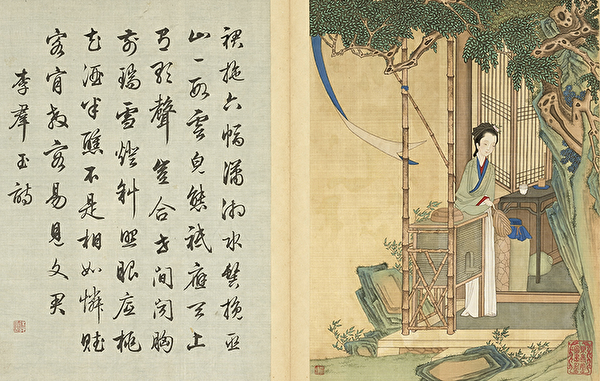 裙拖六幅瀟湘水鬢挽巫
山一段雲皃態祇應天上
有歌聲豈合世間聞胸
前瑞雪燈斜照眼底桃
花酒半醺不是相如憐賦
客肯教容易見文君
李羣玉詩